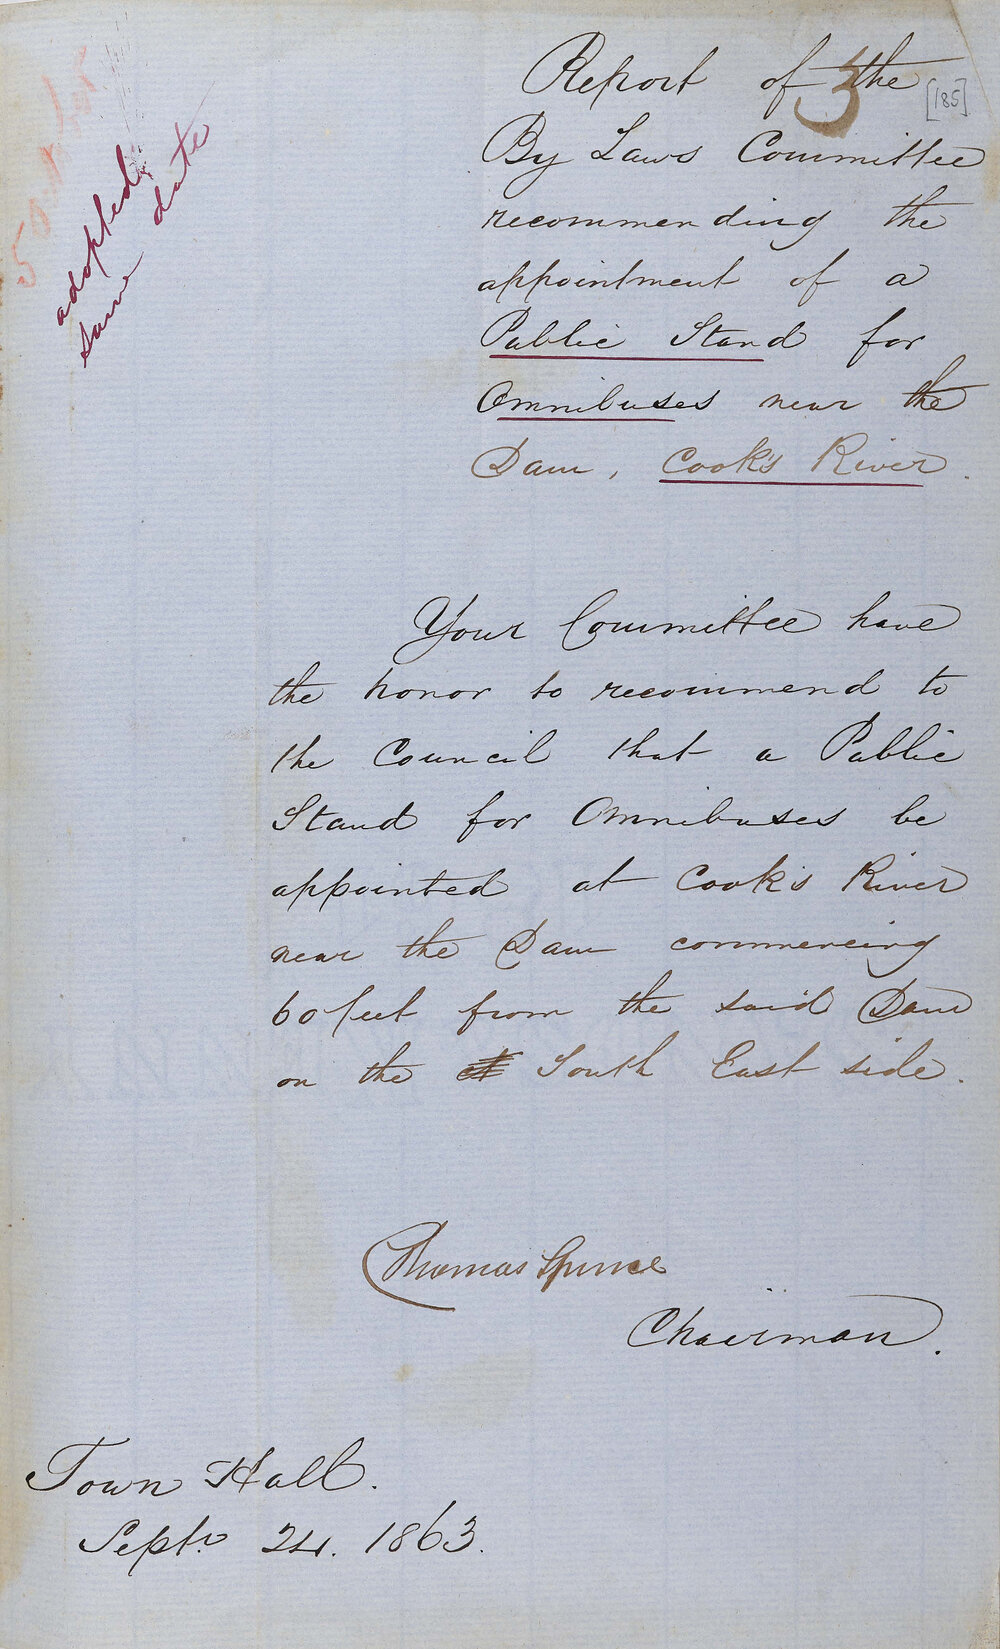 Report of the
3
[185]
By Laws Committee
recommending the
appointment of a
Public Stand for
Omnibuses near the
Dam, Cook's River.
adopted
same date
Your Committee have
the honor to recommend to
the Council that a Public
Stand for Omnibuses be
appointed at Cook's River
near the Dam commencing
60 feet from the said Dam
on the South East side.
Thomas Spence
Chairman.
Town Hall.
Septr. 24. 1863.